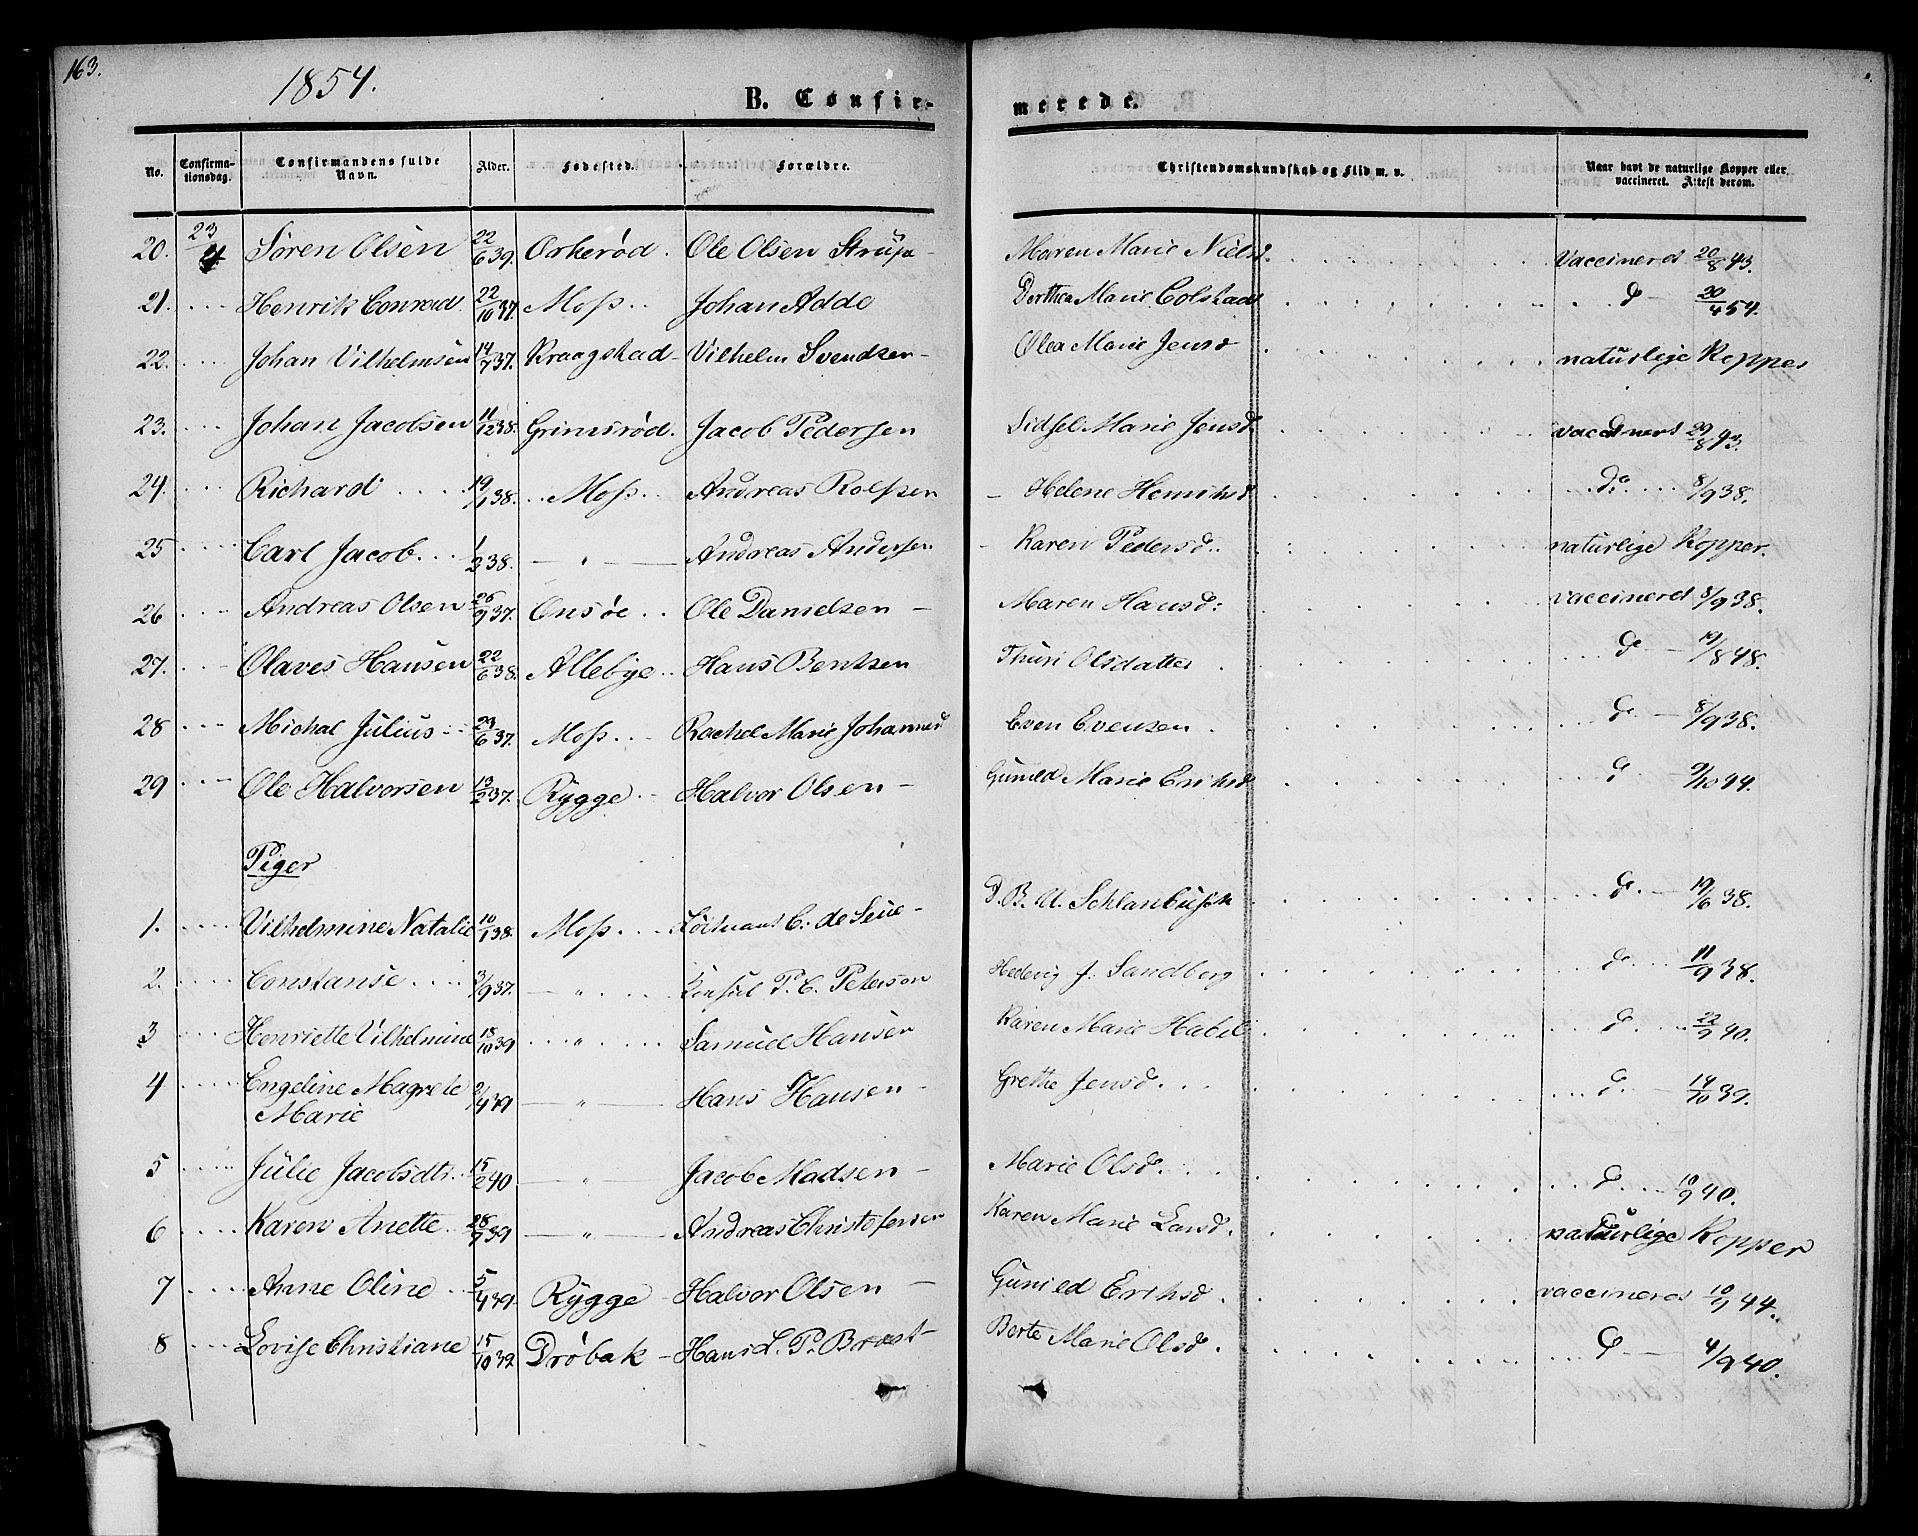 163.
1854.
B. Confirmerede.
No. Confirmationsdag. Confirmandens fulde Navn. Alder. Fødested. Forældre. Christendomskundskab og Flid m. v. Naar havt de naturlige Kopper eller vaccineret. Attest derom.
20. 23/4 Søren Olsen 22/6 39. Orkerød. Ole Olsen Strüp - Maren Marie Nielsd. Vaccineret 20/8 43.
21. Henrik Conrad 22/10 37. Moss Johan Adde Dorthea Marie Colstad d 20/4 54.
22. Johan Vilhelmsen 14/7 37. Kraagstad - Vilhelm Svendsen - Olea Marie Jensd naturlige Kopper
23. Johan Jacobsen 11/12 38. Grimsrød. Jacob Pedersen Sidsel Marie Jensd. vaccineret 29/8 43.
24. Richard 19/1 38. Moss Andreas Rolfsen - Helene Henrichsd do 8/9 38.
25 Carl Jacob 1/2 38. — " — Andreas Andersen - Karen Pedersd. naturlige Kopper.
26 Andreas Olsen 26/9 37. Onsøe Ole Danielsen - Maren Hansd: vaccineret 8/9 38.
27. Olaves Hansen 22/6 38. Allebye Hans Bentsen Thuri Olsdatter d - 19/8 48.
28 Michal Julius 23/6 37. Moss Rachel Marie Johannesd Even Evensen d - 8/9 38.
29 Ole Halvorsen 13/2 37. Rygge Halvor Olsen - Gunild Marie Erichsd d - 9/10 44.
Piger
1. Vilhelmine Natalie 10/1 38. Moss C. de Seue - D. B. U. Schlanbusch d. - 19/6 38.
2. Constanse 3/9 37. — " Konsul P. C. Peterson Hedevig J. Sandberg d. 11/9 38.
3 Henriette Vilhelmine 18/10 39 " Samuel Hansen Karen Marie Habel d 22/9 40.
4 Engeline Magrete Marie 2/4 39 — " — Hans Hansen - Grethe Jensd. d. - 14/10 39.
5 Julie Jacobsdtr. 15/2 40 — " — Jacob Madsen - Marie Olsd. d. 10/9 40.
6 Karen Anette 28/9 39 — " — Andreas Christofersen Karen Marie Larsd. naturlige Kopper
7 Anne Oline 5/4 39. Rygge - Halvor Olsen - Gunild Erichsd. vaccineret 10/9 44.
8 Lovise Christiane 15/10 39 Drøbak - Hans L. P. Brost - Berte Marie Olsd. d - 4/9 40.